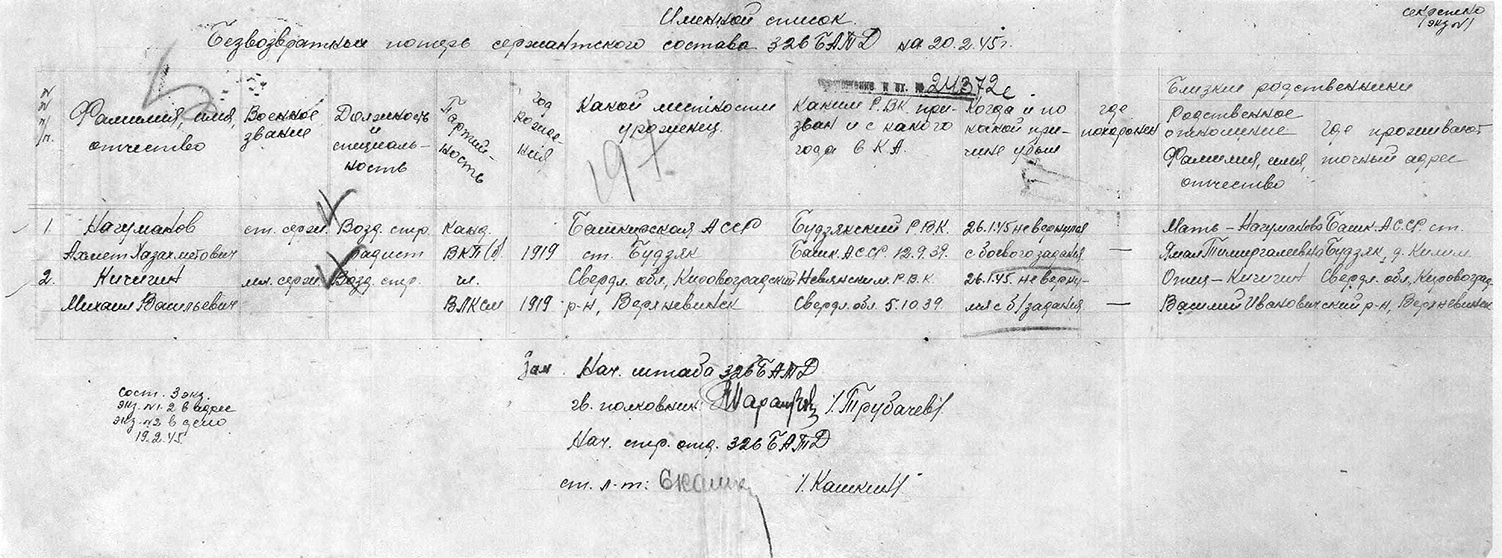 секретно
(экз №1)
Именной список
Безвозвратных потерь сержантского состава 326 БАТД на 20.2.45г.
вх. № 24372с
№ п/п. Фамилия, имя, отчество
Военное звание
Должность и специальность
Партийность
Год рождения
Какой местности уроженец
Каким Р.В.К призван и с какого года в К.А.
Когда и по какой причине убыл
где похоронен
Близкие родственники
Родственное отношение Фамилия, имя, отчество
Где проживают точный адрес
19 +
1 Нагуманов ст. серж. Возд. стр. Канд. Башкирская АССР Будзякский Р.В.К. 26.1.45 не вернулся Мать - Нагуманова Башк. АССР ст.
Ахмет Хазаметович радист ВКП(б) 1919 ст. Будзяк Башк. АССР 12.9.39. с боевого задания — Тимиргалеевна Будзяк, д. Килим
2. Кичигин мл. серж. Возд. стр. чл. Свердл. обл, Кировоградский Невянским Р.В.К. 26.1.45. не верну- Отец - Кичигин Свердл. обл, Кировоград-
Михаил Васильевич ВЛКСМ 1919 р-н, Верхневинск Свердл. обл 5.10.39. лся с б/задания — Василий Иванович ский р-н, Верхневинск
Зам. Нач. штаба 326 БАТД
гв. полковник: /.Трубачев/
Нач. стр. отд. 326 БАТД
ст. л-т: /.Кашкин/
сост. 3 экз.
экз. №1-2 в адрес
экз. №2 в дело
19.2.45